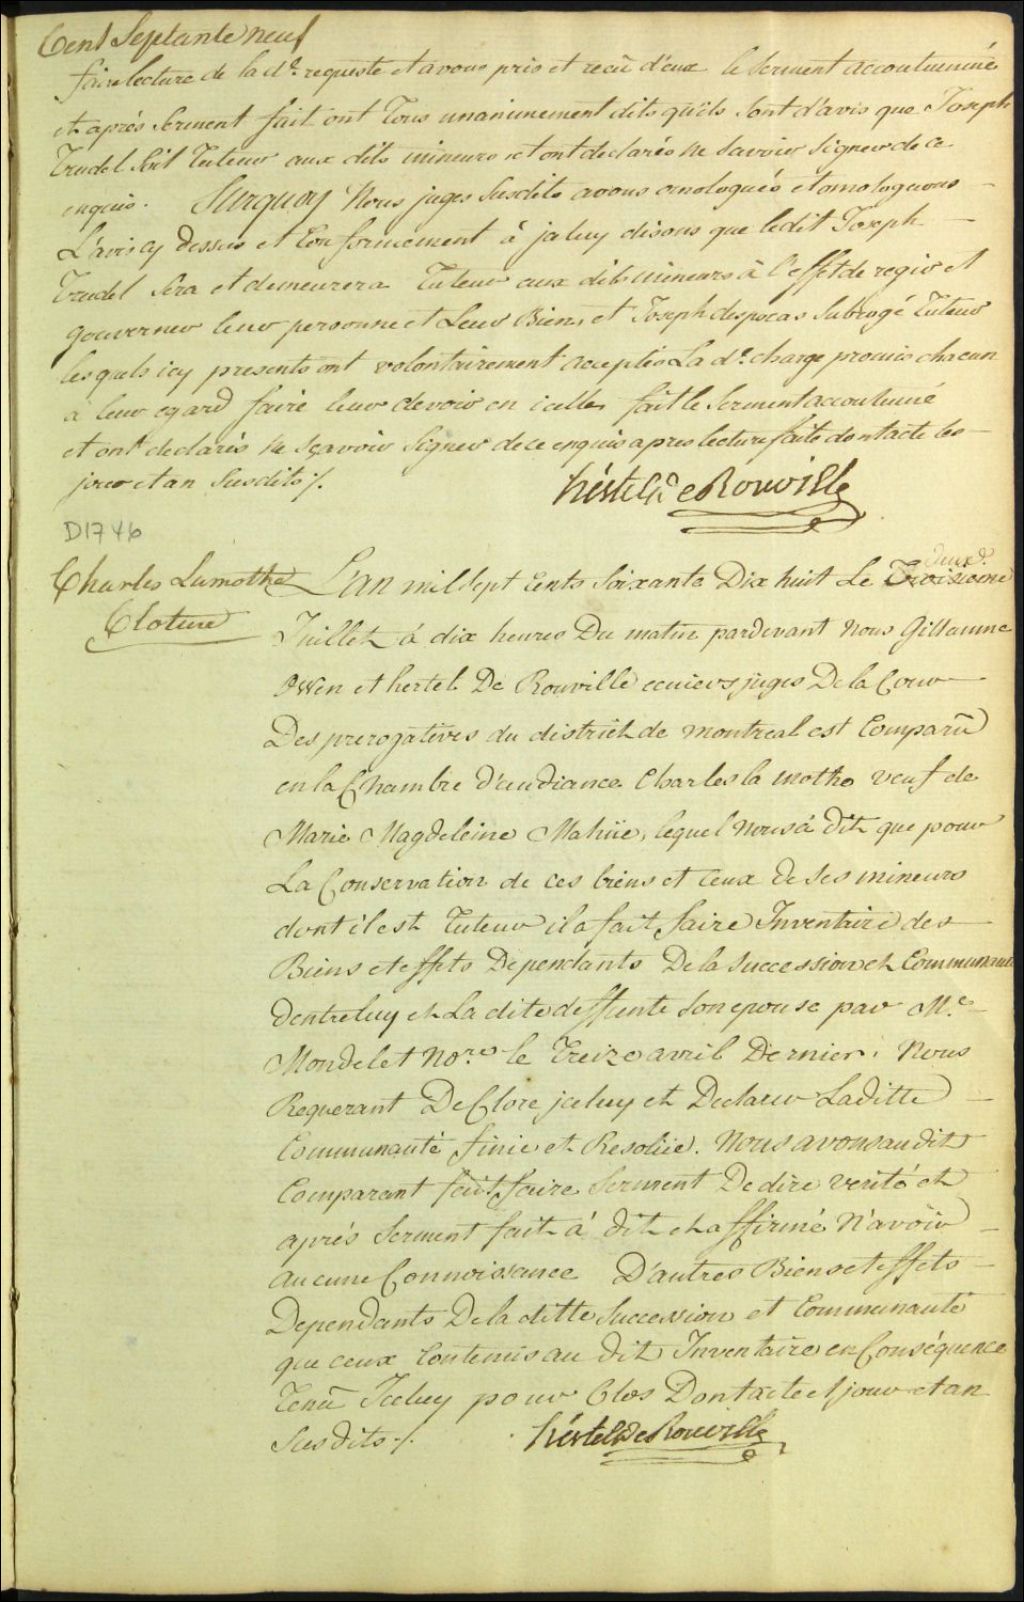 Cent Septante neuf
faire lecture de la de. requeste et avons pris et recû d'eux le serment accoutumé
et aprés serment fait ont Tous unanimement dits qu'ils sont d'avis que Joseph
Trudel soit Tuteur aux dits mineurs et ont declarés ne savoir signer de ce
enquis. Surquoy Nous juges susdits avons omologués et omologuons
L'avis cy dessus et Conformement à jceluy disons que le dit Joseph
Trudel sera et demeurera Tuteur aux dits mineurs à l'effet de regir et
gouverner leur personne et Leur Biens et Joseph despocas subrogé Tuteur
lesquels icy presents ont volontairement acceptés La de. charge promis chacun
a leur egard faire leur devoir en icelles fait le serment accoutumé
et ont declarés ne sçavoir signer de ce enquis apres lecture faite dont acte les
jour et an susdits ./.
hertel de Rouville
D1746
Charles Lamothe
Cloture
deux d.
L'an mil sept Cents soixante Dix huit Le Troisieme
Juillet à dix heures Du matin pardevant Nous Gillaume
Owen et hertel De Rouville ecuiers juges De la Cour
Des prerogatives du district de montreal est Comparû
en la Chambre d'audiance Charles la mothe veuf de
Marie Magdeleine Mahüe, lequel Nous à dit que pour
La Conservation de ces biens et ceux de ses mineurs
dont il est Tuteur il a fait faire Inventaire des
Biens et effets Dependants De la succession et Communauté
d'entre luy et La dite deffunte son epouse par Me.
Mondelet Nore. le Treize avril Dernier. Nous
Requerant De Clore jceluy et Declarer Laditte
Communauté finie et Resolüe. Nous avons au dit
Comparant fait faire serment De dire verité et
aprés serment fait à dit et affirmé N'avoir
aucune Connoissance D'autres Biens et effets
Dependants De la ditte succession et Communauté
que ceux Contenus au dit Inventaire en Conséquence
Tenû Iceluy pour Clos Dont acte et jour et an
susdits ./. hertel de Rouville